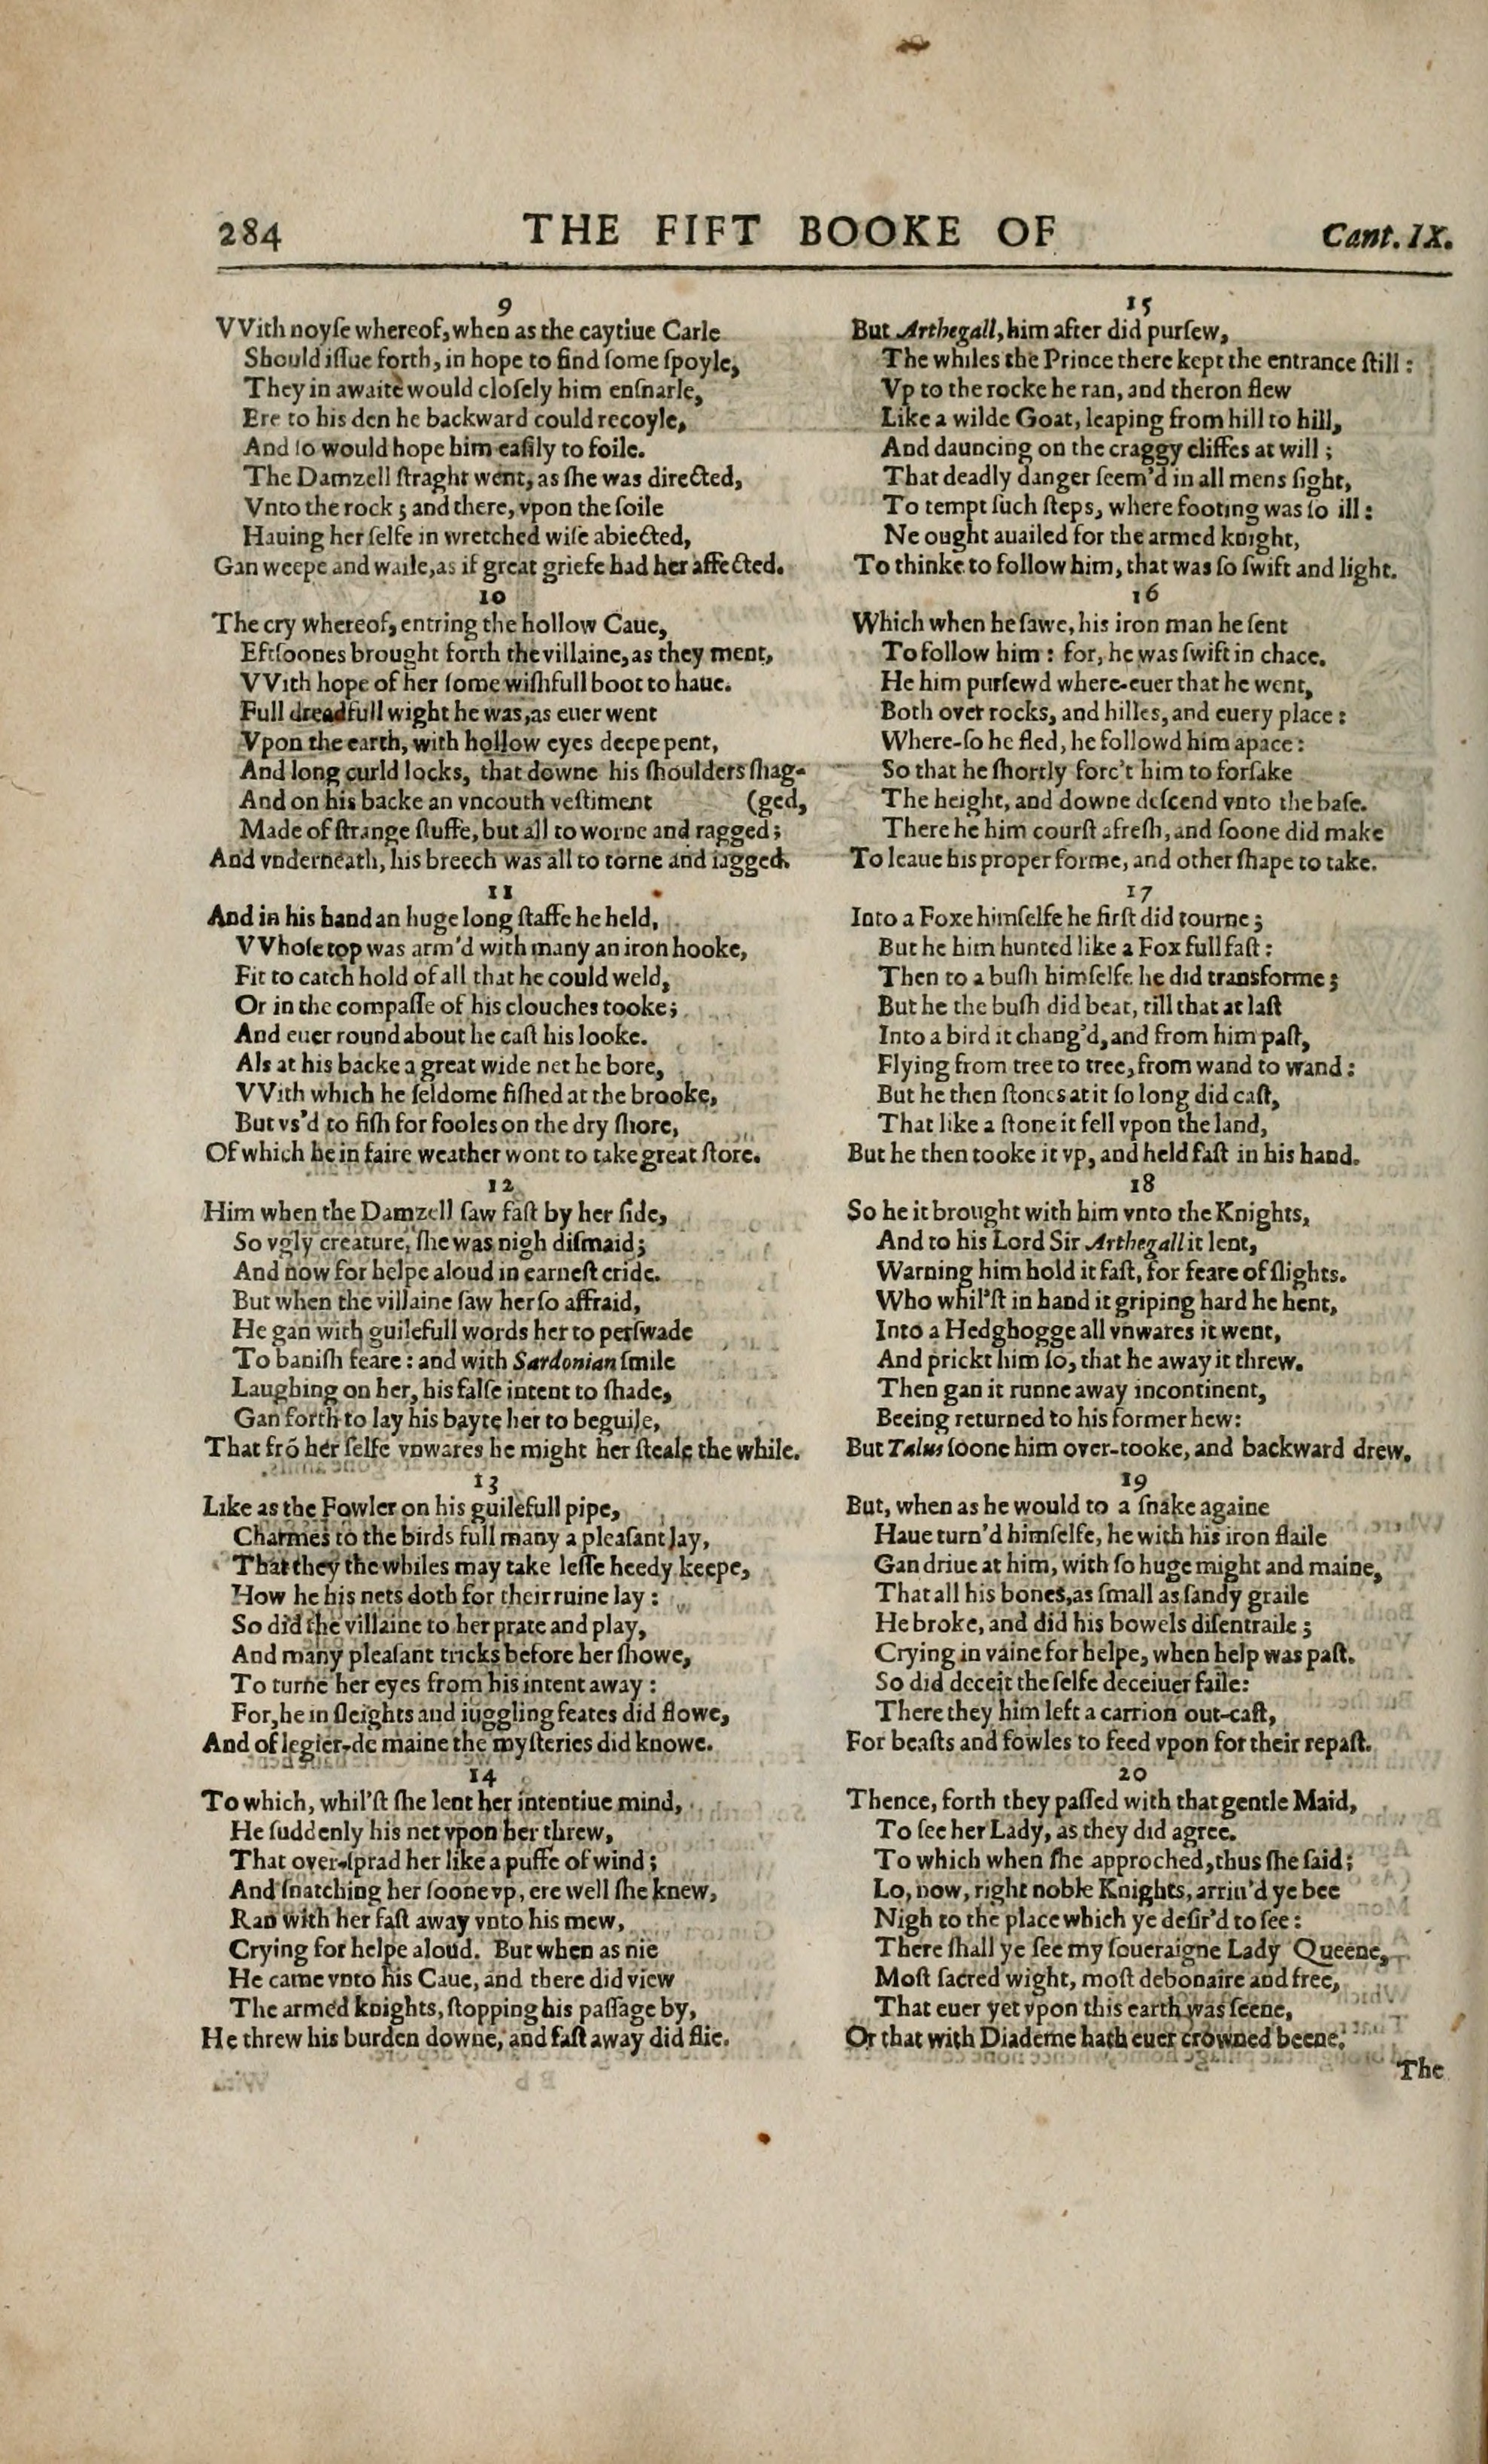 284 THE FIFT BOOKE OF Cant. IX.
9
VVith noyſe whereof, when as the caytiue Carle
Should iſſue forth, in hope to find ſome ſpoyle,
They in awaite would cloſely him enſnarle,
Ere to his den he backward could recoyle,
And ſo would hope him eaſily to foile.
The Damzell ſtraght went, as ſhe was directed,
Vnto the rock; and there, vpon the ſoile
Hauing her ſelfe in wretched wiſe abiected,
Gan weepe and waile, as if great griefe had her affected.
10
The cry whereof, entring the hollow Caue,
Eftſoones brought forth the villaine, as they ment,
VVith hope of her ſome wiſhfull boot to haue.
Full dreadfull wight he was, as euer went
Vpon the earth, with hollow eyes deepe pent,
And long curld locks, that downe his ſhoulders ſhag-
And on his backe an vncouth veſtiment (ged,
Made of ſtrange ſtuffe, but all to worne and ragged;
And vnderneath, his breech was all to torne and iagged.
11
And in his hand an huge long ſtaffe he held,
VVhoſe top was arm'd with many an iron hooke,
Fit to catch hold of all that he could weld,
Or in the compaſſe of his clouches tooke;
And euer round about he caſt his looke.
Als at his backe a great wide net he bore,
VVith which he ſeldome fiſhed at the brooke,
But vs'd to fiſh for fooles on the dry ſhore,
Of which he in faire weather wont to take great ſtore.
12
Him when the Damzell ſaw faſt by her ſide,
So vgly creature, ſhe was nigh diſmaid;
And now for helpe aloud in earneſt cride.
But when the villaine ſaw her ſo affraid,
He gan with guilefull words her to perſwade
To baniſh feare: and with Sardonian ſmile
Laughing on her, his falſe intent to ſhade,
Gan forth to lay his bayte her to beguile,
That frõ her ſelfe vnwares he might her ſteale the while.
13
Like as the Fowler on his guilefull pipe,
Charmes to the birds full many a pleaſant lay,
That they the whiles may take leſſe heedy keepe,
How he his nets doth for their ruine lay:
So did the villaine to her prate and play,
And many pleaſant tricks before her ſhowe,
To turne her eyes from his intent away:
For, he in ſleights and iuggling feates did flowe,
And of legier-de maine the myſteries did knowe.
14
To which, whil'ſt ſhe lent her intentiue mind,
He ſuddenly his net vpon her threw,
That over-ſprad her like a puffe of wind;
And ſnatching her ſoone vp, ere well ſhe knew,
Ran with her faſt away vnto his mew,
Crying for helpe aloud. But when as nie
He came vnto his Caue, and there did view
The armed knights, ſtopping his paſſage by,
He threw his burden downe, and faſt away did flie.
15
But Arthegall, him after did purſew,
The whiles the Prince there kept the entrance ſtill:
Vp to the rocke he ran, and theron flew
Like a wilde Goat, leaping from hill to hill,
And dauncing on the craggy cliffes at will;
That deadly danger ſeem'd in all mens ſight,
To tempt ſuch ſteps, where footing was ſo ill:
Ne ought auailed for the armed knight,
To thinke to follow him, that was ſo ſwift and light.
16
Which when he ſawe, his iron man he ſent
To follow him: for, he was ſwift in chace.
He him purſewd where-euer that he went,
Both over rocks, and hilles, and euery place:
Where-ſo he fled, he followd him apace:
So that he ſhortly forc't him to forſake
The height, and downe deſcend vnto the baſe.
There he him courſt afreſh, and ſoone did make
To leaue his proper forme, and other ſhape to take.
17
Into a Foxe himſelfe he firſt did tourne;
But he him hunted like a Fox full faſt:
Then to a buſh himſelfe he did transforme;
But he the buſh did beat, till that at laſt
Into a bird it chang'd, and from him paſt,
Flying from tree to tree, from wand to wand:
But he then ſtones at it ſo long did caſt,
That like a ſtone it fell vpon the land,
But he then tooke it vp, and held faſt in his hand.
18
So he it brought with him vnto the Knights,
And to his Lord Sir Arthegall it lent,
Warning him hold it faſt, for feare of ſlights.
Who whil'ſt in hand it griping hard he hent,
Into a Hedghogge all vnwares it went,
And prickt him ſo, that he away it threw.
Then gan it runne away incontinent,
Beeing returned to his former hew:
But Talus ſoone him over-tooke, and backward drew.
19
But, when as he would to a ſnake againe
Haue turn'd himſelfe, he with his iron flaile
Gan driue at him, with ſo huge might and maine,
That all his bones, as ſmall as ſandy graile
He broke, and did his bowels diſentraile;
Crying in vaine for helpe, when help was paſt.
So did deceit the ſelfe deceiuer faile:
There they him left a carrion out-caſt,
For beaſts and fowles to feed vpon for their repaſt.
20
Thence, forth they paſſed with that gentle Maid,
To ſee her Lady, as they did agree.
To which when ſhe approched, thus ſhe ſaid;
Lo, now, right noble Knights, arriu'd ye bee
Nigh to the place which ye deſir'd to ſee:
There ſhall ye ſee my ſoueraigne Lady Queene,
Moſt ſacred wight, moſt debonaire and free,
That euer yet vpon this earth was ſeene,
Or that with Diademe hath euer crowned beene.
The